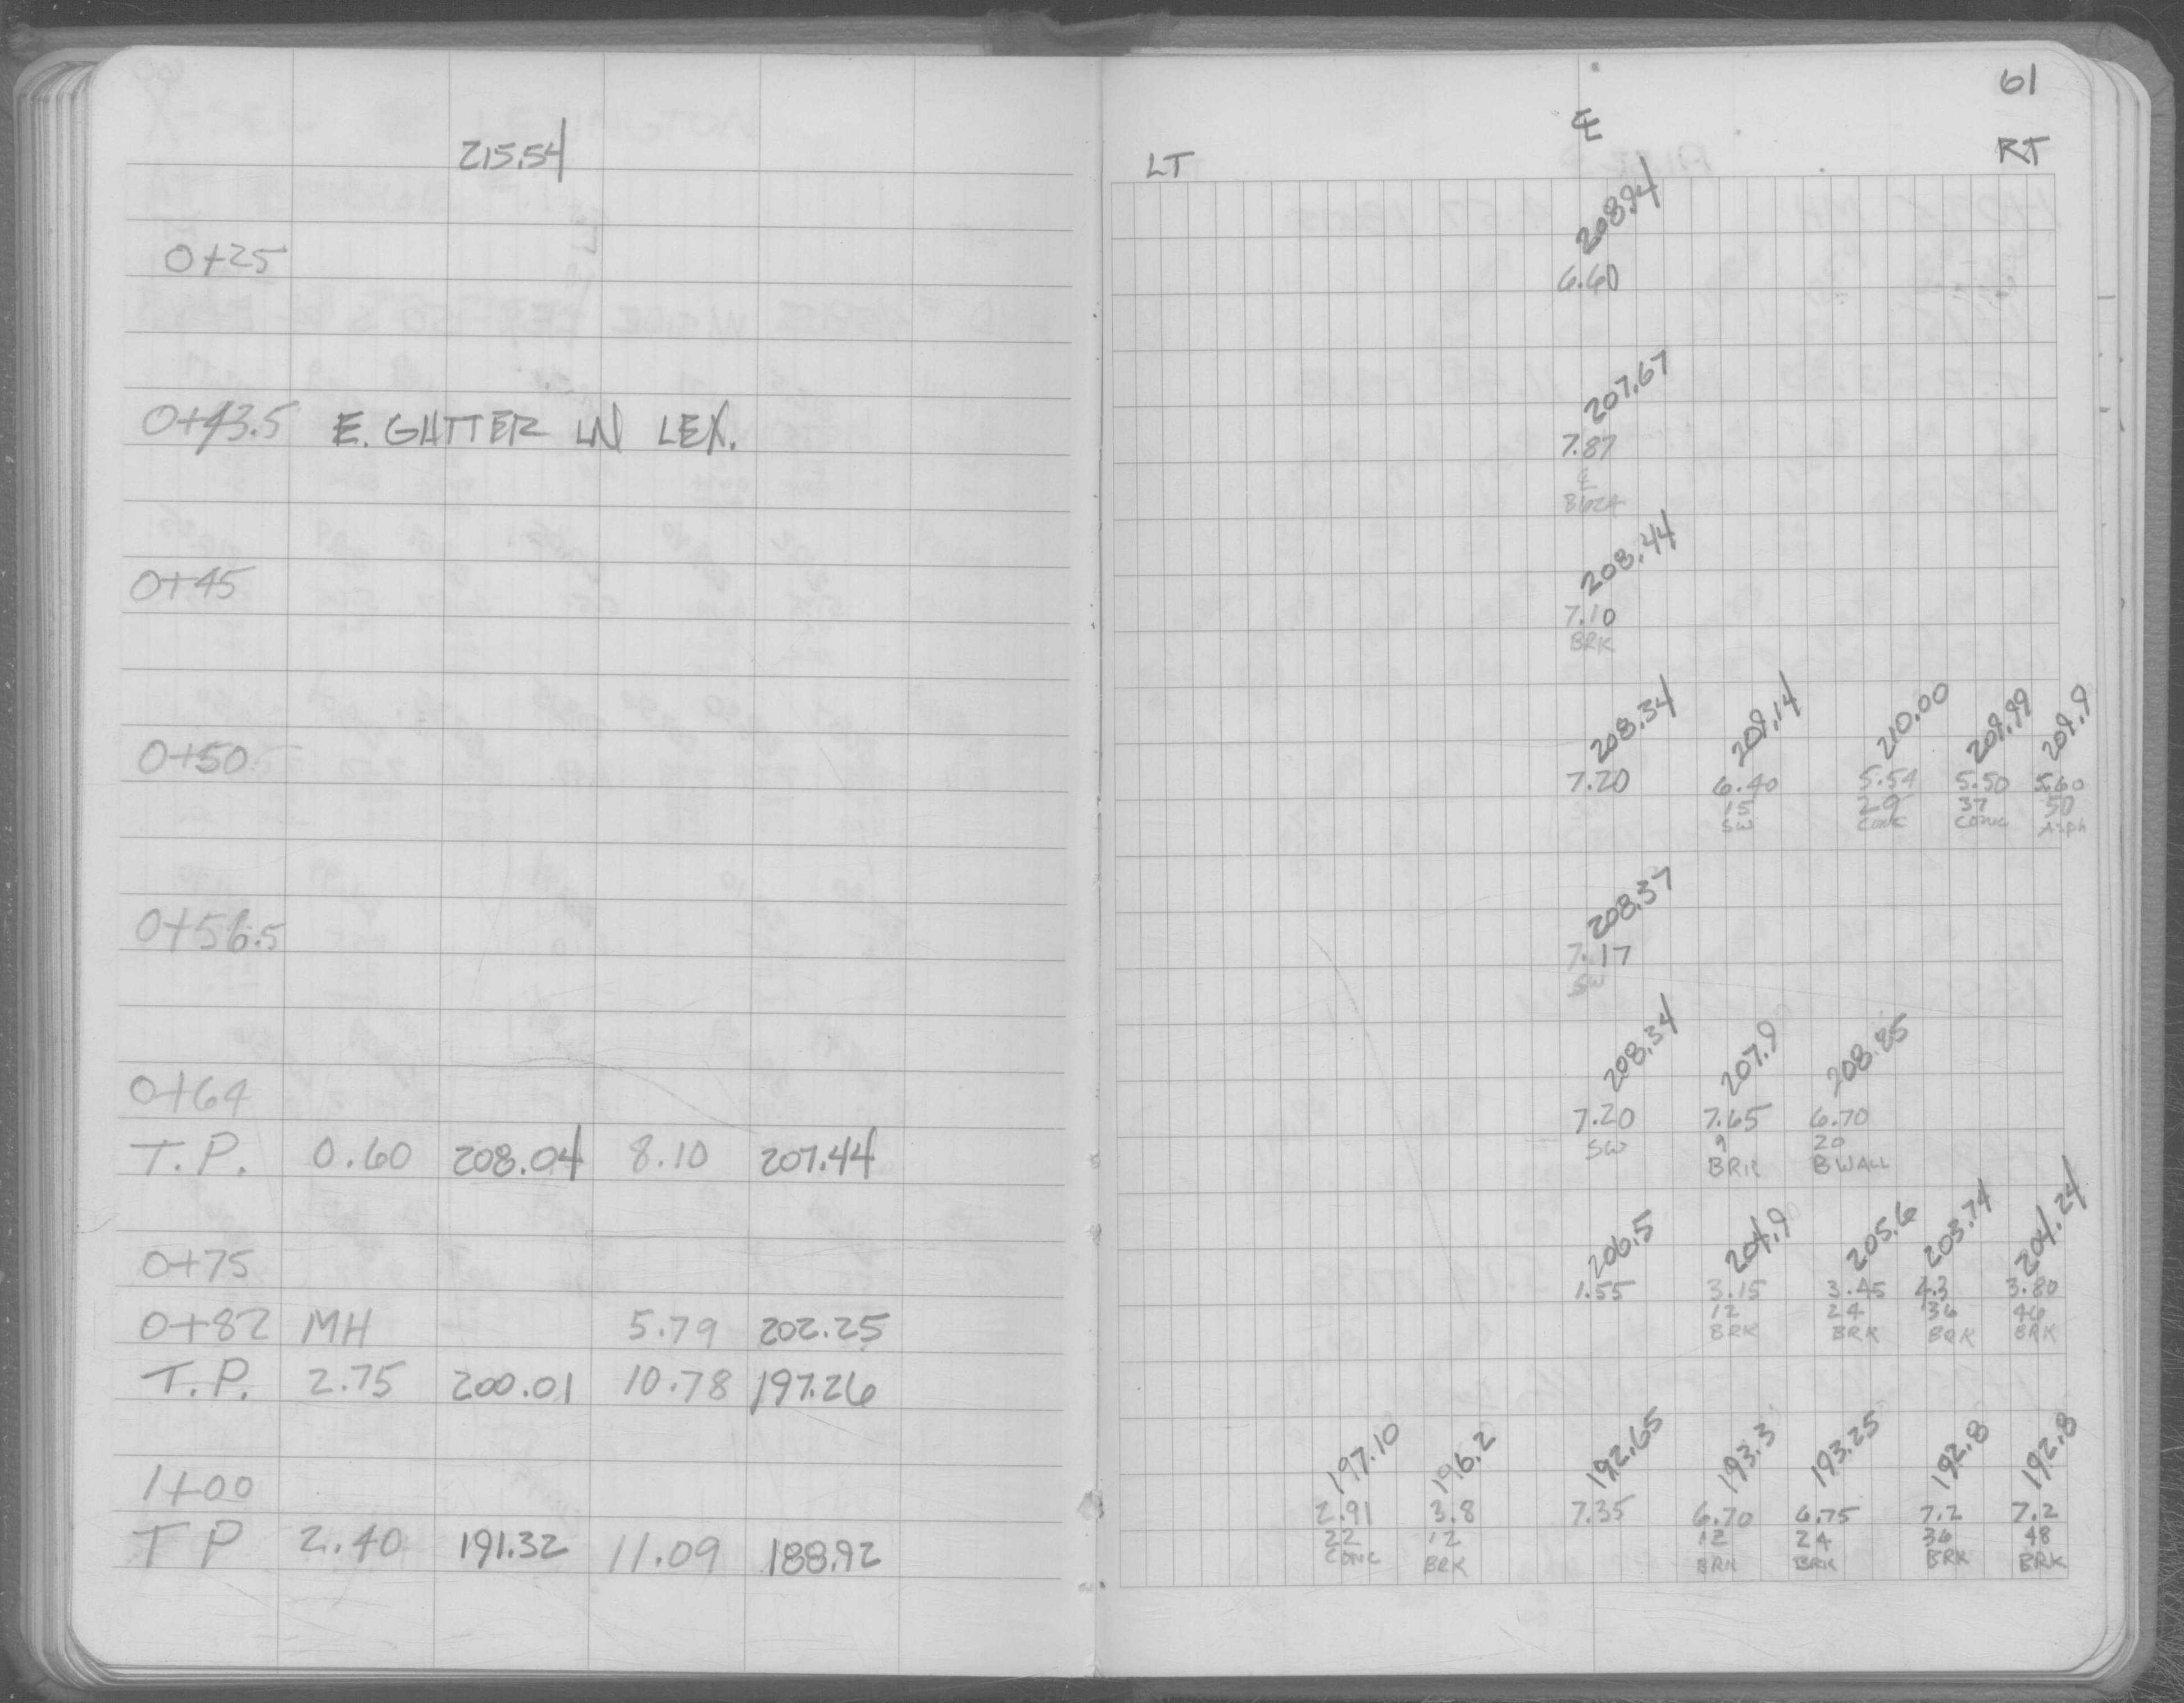 61
℄
LT RT
215.54
208.94
0+25 6.60
207.67
0+43.5 E. GUTTER IN LEX. 7.87
℄
208.44
0+45 7.10
BRK
208.34 209.14 210.00 209.99 209.9
0+50 7.20 6.40 5.54 5.50 5.60
15 29 37 50
SW CONC CONC Asph
208.37
0+56.5 7.17
SW
208.34 207.9 208.85
0+64 7.20 7.65 6.70
T.P. 0.60 208.04 8.10 207.44 SW 9 20
BRK B WALL
206.5 204.9 205.6 203.74 204.24
0+75 1.55 3.15 3.45 4.3 3.80
12 24 36 46
0+82 MH 5.79 202.25 BRK BRK BRK BRK
T.P. 2.75 200.01 10.78 197.26
197.10 196.2 192.65 193.3 193.25 192.8 192.8
1+00 2.91 3.8 7.35 6.70 6.75 7.2 7.2
TP 2.40 191.32 11.09 188.92 22 12 12 24 36 48
CONC BRK BRK BRK BRK BRK